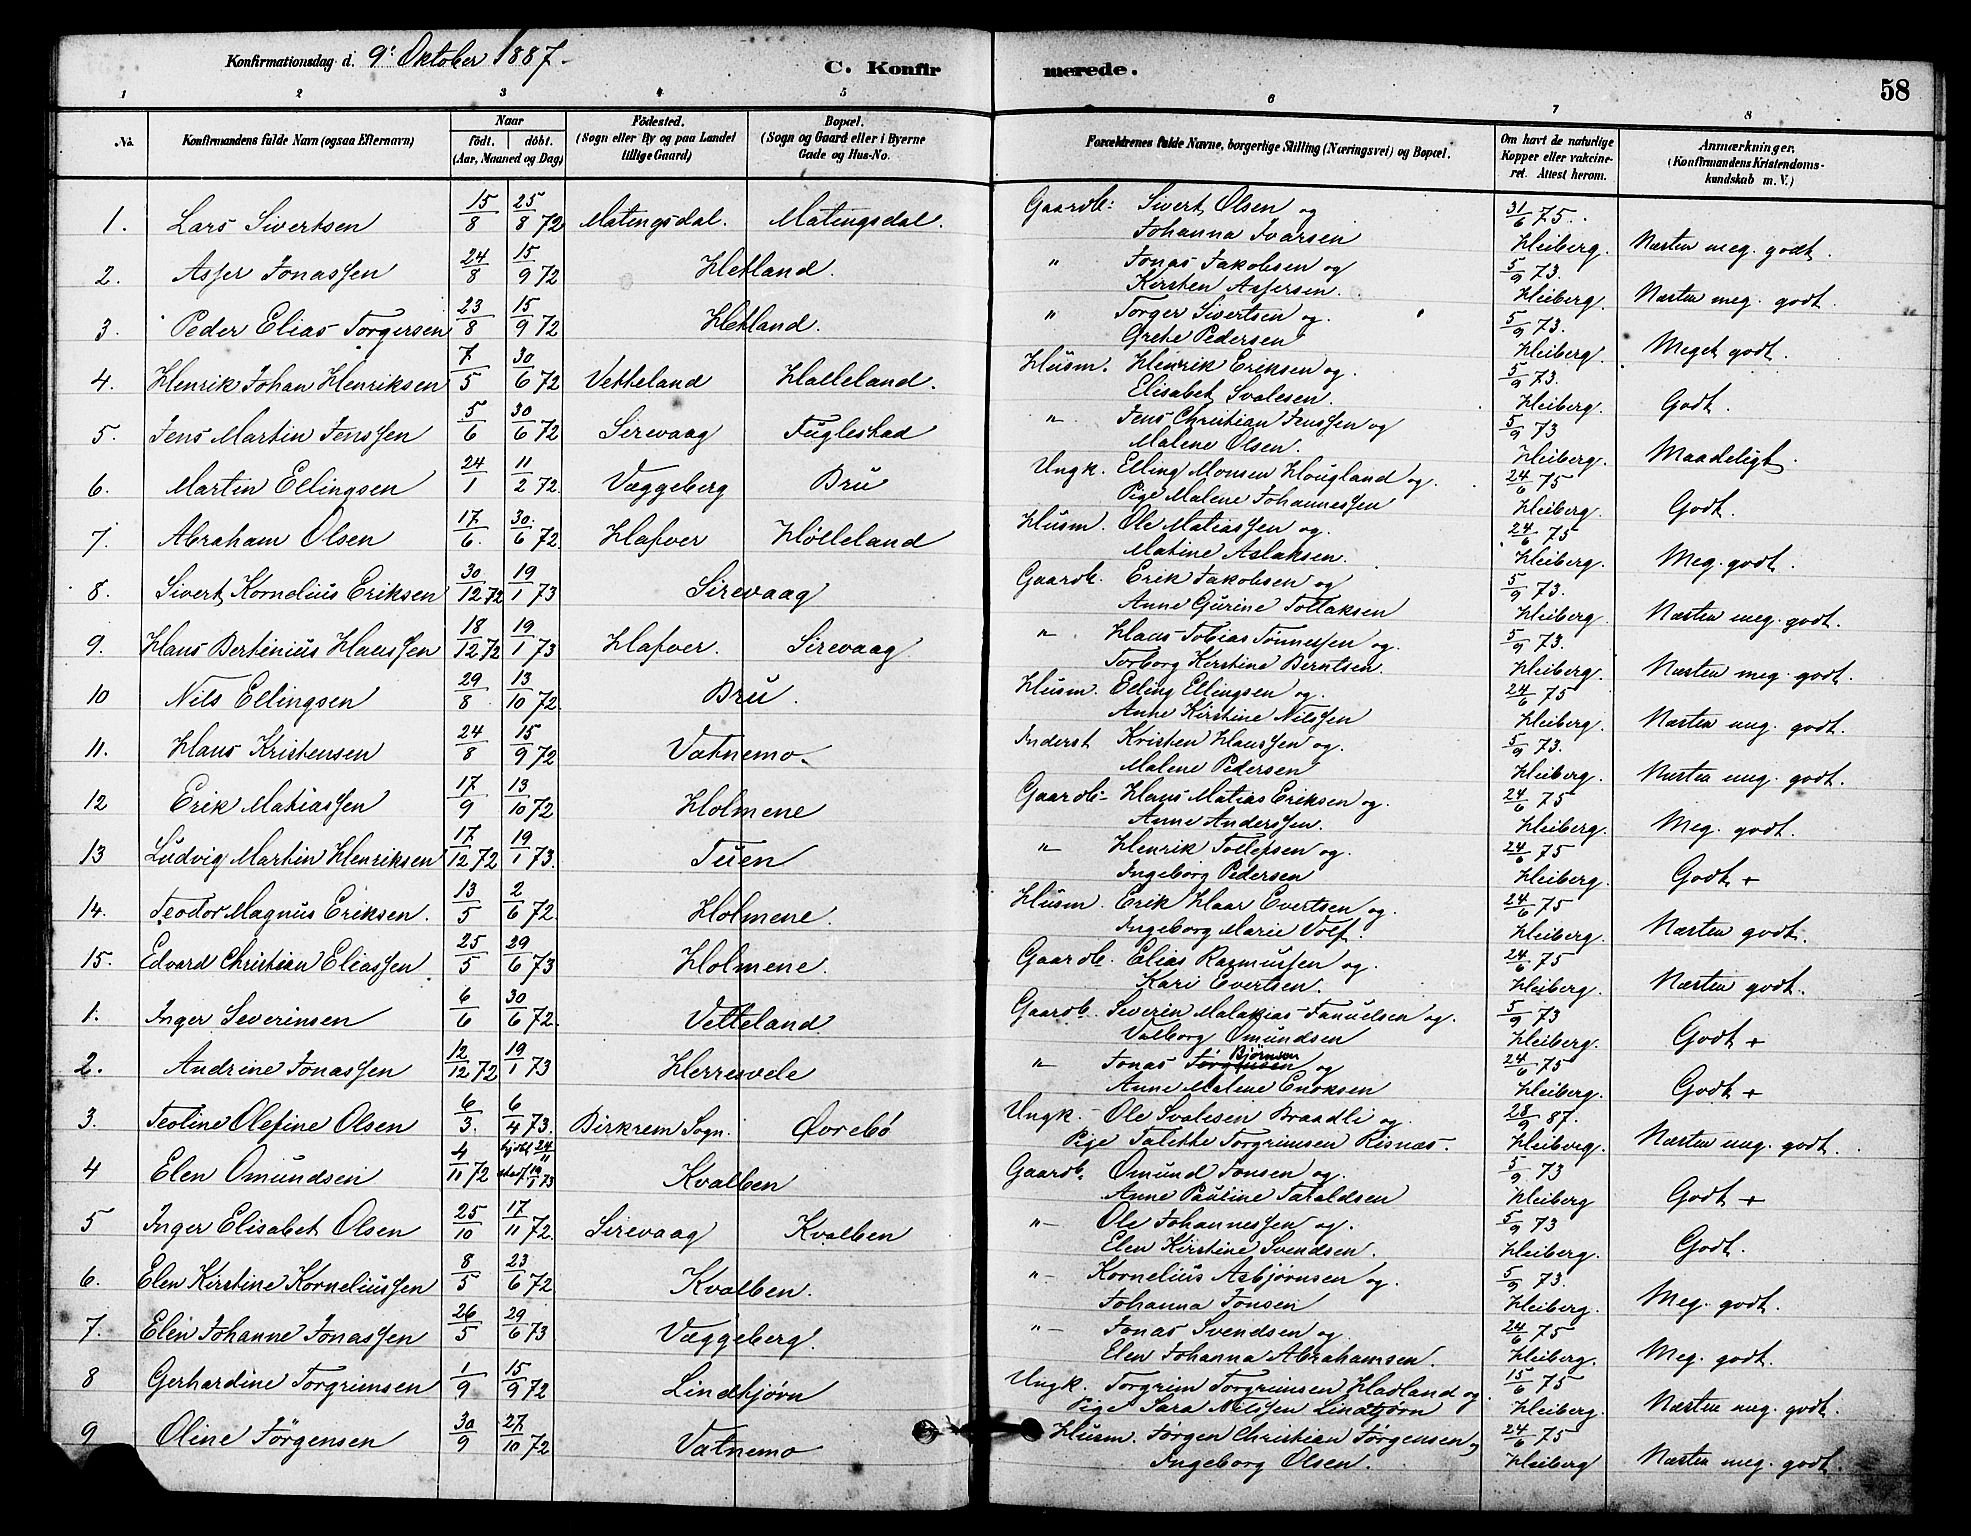 Konfirmationsdag d. 9' Oktober 1887.
C. Konfirmerede.
58
1 2 3 4 5 6 7 8
No. Konfirmandens fulde Navn (ogsaa Efternavn) Naar födt. döbt. (Aar, Maaned og Dag) Födested. (Sogn eller By og paa Landet tillige Gaard) Bopæl. (Sogn og Gaard eller i Byerne Gade og Hus-No. Forældrenes fulde Navne, borgerlige Stilling (Næringsvei) og Bopæl. Om havt de naturlige Kopper eller vakcineret. Attest herom. Anmærkninger. (Konfirmandens Kristendomskundskab m. V.)
1. Lars Sivertsen 15/8 25/8 72 Matingsdal. Matingsdal. Gaardb: Sivert Olsen og 31/6 75.
Johanna Ivarsen Heiberg. Næsten meg. godt.
2. Asser Jonassen 24/8 15/9 72 Hetland. " Jonas Jakobsen og 5/9 73.
Kirsten Assersen. Heiberg. Næsten meg. godt.
3. Peder Elias Torgersen 23/8 15/9 72 Hetland. " Torger Sivertsen og 5/9 73.
Grete Pedersen Heiberg. Meget godt.
4. Henrik Johan Henriksen 7/5 30/6 72 Vetteland Hælleland. Husm. Henrik Eriksen og 5/9 73.
Elisabet Svalesen. Heiberg. Godt.
5. Jens Martin Jenssen 5/6 30/6 72 Sirevaag Fuglestad " Jens Christian Jenssen og 5/9 73
Malene Olsen. Heiberg. Maadeligt.
6. Martin Ellingsen 24/1 11/2 72. Væggeberg Bru Ungk. Elling Monsen Hougland og 24/6 75
Pige Malene Johannessen Heiberg. Godt.
7. Abraham Olsen 17/6 30/6 72. Hafver Hølleland Husm. Ole Matiassen og 24/6 75
Matine Aslaksen. Heiberg. Meg. godt.
8. Sivert Kornelius Eriksen 30/12 72 19/1 73 Sirevaag Gaardb. Erik Jakobsen og 5/9 73.
Anne Gurine Tollaksen Heiberg. Næsten meg. godt.
9. Hans Bertinius Hanssen 18/12 72 19/1 73 Hafver. Sirevaag " Hans Tobias Tønnessen og 5/9 73.
Torborg Kirstine Berntsen. Heiberg. Næsten meg. godt.
10 Nils Ellingsen 29/8 13/10 72. Bru. Husm. Elling Ellingsen og 24/6 75
Anne Kirstine Nilssen Heiberg. Næsten meg. godt.
11. Hans Kristensen 24/8 15/9 72 Vatnemo. Inderst Kristen Hanssen og 5/9 73.
Malene Pedersen Heiberg. Næsten meg. godt.
12 Erik Matiassen 17/9 13/10 72 Holmene Gaardb. Hans Matias Eriksen og 24/6 75
Anne Anderssen. Heiberg. Meg. godt.
13 Ludvig Martin Henriksen 17/12 72 19/1 73. Tuen " Henrik Tollefsen og 24/6 75
Ingeborg Pedersen Heiberg. Godt +
14. Teodor Magnus Eriksen. 13/5 2/6 72. Holmene. Husm. Erik Haar Evertsen og 24/6 75
Ingeborg Marie Volf. Heiberg. Næsten godt.
15. Edvard Christian Eliassen 25/5 29/6 73 Holmene. Gaardb. Elias Rasmussen og 24/6 75
Kari Evertsen. Heiberg. Næsten godt.
1. Inger Severinsen 6/6 30/6 72. Vetteland Gaardb. Severin Malakias Fanuelsen og 5/9 73
Valborg Omundsen Heiberg. Godt +
2. Andrine Jonassen 12/12 72 19/1 73 Herresvele " Jonas Bjørnsen og 24/6 75
Anne Malene Enoksen Heiberg. Godt +
3. Teoline Olefine Olsen 6/3. 6/4 73. Birkrem Sogn. Øvrebö Ungk. Ole Svalesen Braadli og 28/9 87.
Pige Talette Torgrimsen Risnæs. Heiberg. Næsten meg. godt.
4 Elen Omundsen 4/11 72 hjdbt 24/11 stadf 19/1 73 Kvalben Gaardb. Ømund Jonsen og 5/9 73
Anne Pauline Taraldsen Heiberg Godt +
5 Inger Elisabet Olsen 25/10 17/11 72. Sirevaag Kvalben " Ole Johannessen og 5/9 73
Elen Kirstine Svendsen. Heiberg. Godt.
6. Elen Kirstine Korneliussen 8/5 23/6 72 Kvalben. " Kornelius Asbjørnsen og 5/9 73.
Johanna Jonsen Heiberg. Meg. godt.
7. Elen Johanne Jonassen 26/5 29/6 73 Væggeberg. " Jonas Svendsen og 24/6 75
Elen Johanna Abrahamsen. Heiberg. Meg. godt.
8 Gerhardine Torgrimsen 1/9 15/9 72 Lindtjørn Ungk. Torgrim Torgrimsen Hadland og 15/6 75
Pige Sara Nilssen Lindtjørn Heiberg. Næsten meg. godt.
9 Oline Jørgensen 30/9 27/10 72 Vatnemo Husm. Jørgen Christian Jørgensen, 24/6 75
Ingeborg Olsen. Heiberg Næsten meg. godt.